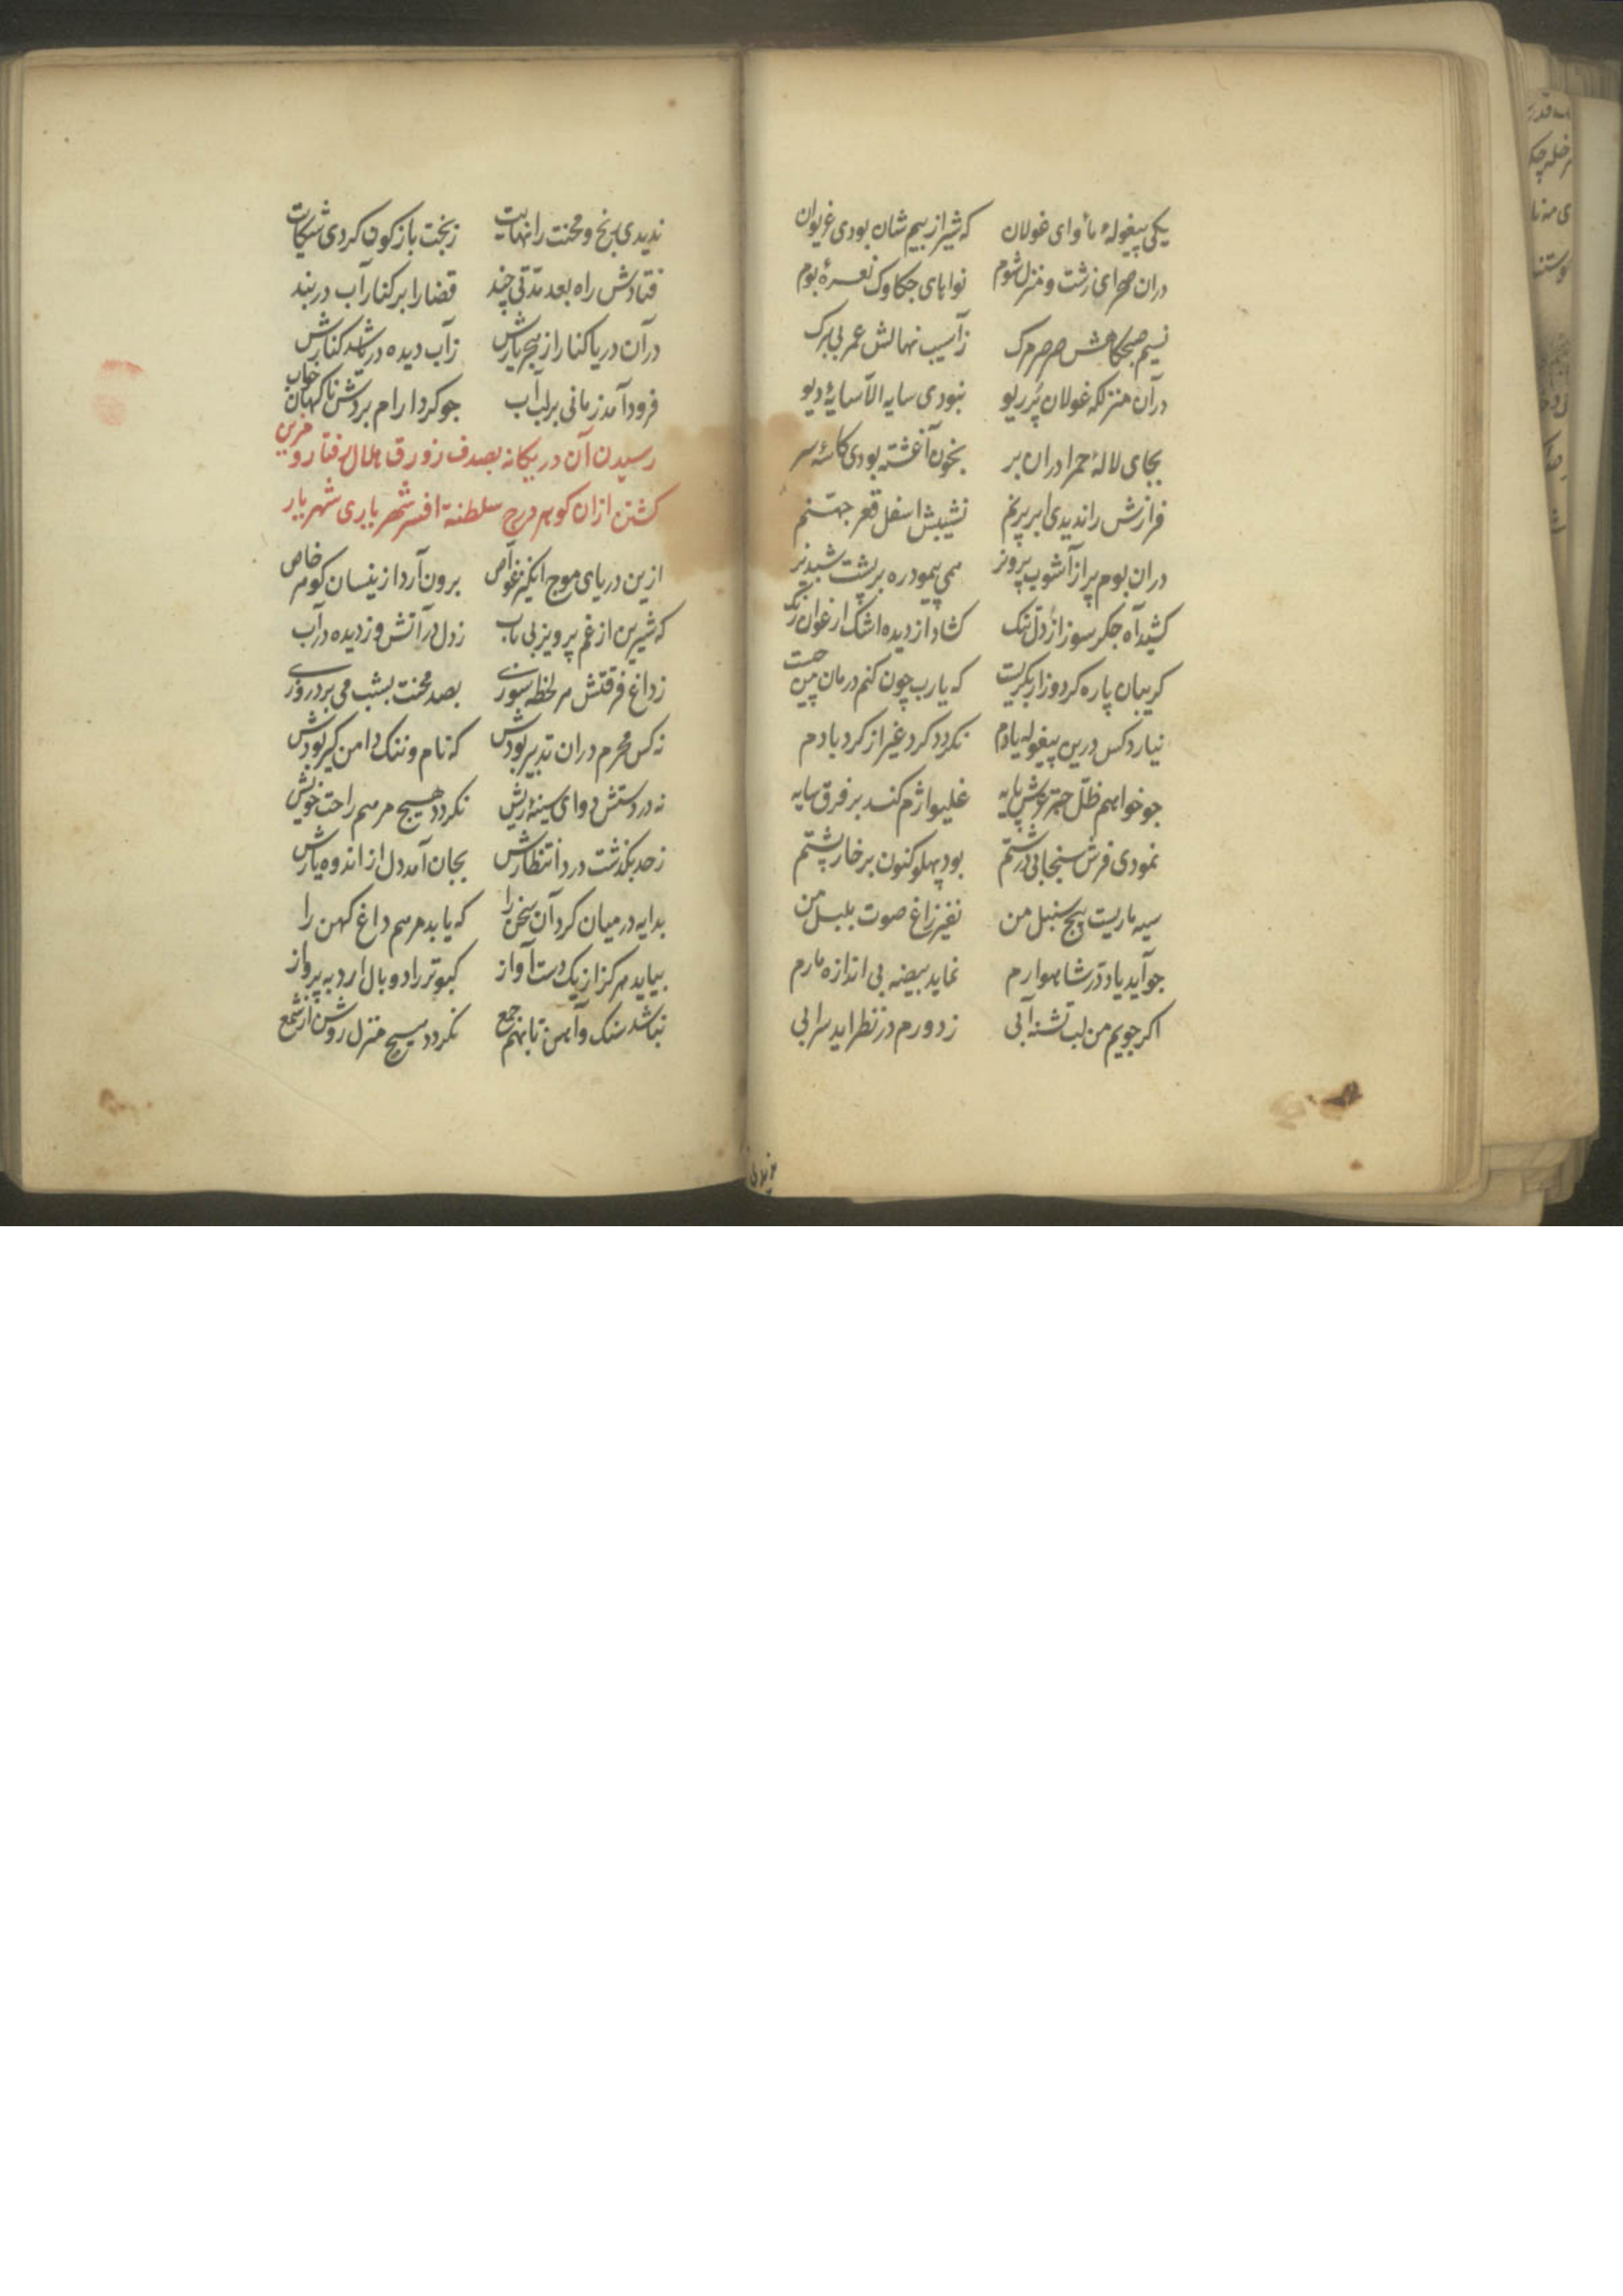 یکی پیغوله مأوای غولان که شیر از بیم شان بودی غریوان
دران صحرای زشت و منزل شوم نواهای جکاوک نعرهٔ بوم
نسیم صبحکاهش صرصر مرک ز آسیب نهالش عمر بی برک
در آن منزلکه غولان پُر ریو نبودی سایه الّا سایهٔ دیو
بجای لالهٔ حمرا دران بر بخون آغشته بودی کاسهٔ سر
فرازش را ندیدی ابر پر نم نشیبش اسفل قعر جهنّم
دران بوم پر از آشوب پرویز همی پیمود ره بر پشت شبدیز
کشید آه جکر سوز از دل تنک کشاد از دیده اشک ارغوان رنک
کریبان پاره کرد و زار بکریست که یارب چون کنم درمان من چیست
نیارد کس درین پیغوله یادم نکردد کرد غیر از کرد بادم
جو خواهم ظلّ چتر عرش پایه غلیواژم کند بر فرق سایه
نمودی فرش سنجابی درشتم بود پهلو کنون بر خار پشتم
سیه ماریست پیچ سنبل من نفیر زاغ صوت بلبل من
جو آید یاد درّ شاهوارم نماید بیضه بی اندازه مارم
اکر جویم من لب تشنه آبی ز دورم در نظر اید سرابی
ندیدی رنج و محنت را نهایت ز بخت باژکون کردی شکایت
فتادش راه بعد مدّتی چند قضا را بر کنار آب دربند
در آن دریا کنار از هجر یارش ز آب دیده دریا شد کنارش
فرود آمد زمانی بر لب آب جو کرد ارام بردش ناکهان خواب
رسیدن آن در یکانه بصدف زورق هلال رفتار و مزین
کشتن ازان کوهر درج سلطنة افسر شهریاری شهریار
ازین دریای موج انکیز غوّاص برون آرد از نیسان کوهر خاص
که شیرین از غم پرویز بی تاب ز دل در آتش و ز دیده در آب
ز داغ فرقتش هر لحظه سوزی بصد محنت بشب می برد روزی
نه کس محرم دران تدبیر بودش که نام و ننک دامن کیر بودش
نه در دستش دوای سینهٔ ریش نکردد هیچ مرهم راحت خویش
ز حد بکذشت درد انتظارش بجان آمد دل از اندوه یارش
بدایه در میان کرد آن سخن را که یابد مرهم داغ کهن را
نیاید هرکز از یک دست آواز کبوتر را دو بال ارد به پرواز
نباشد سنک و آهن تا بهم جمع نکردد هیچ منزل روشن از شمع